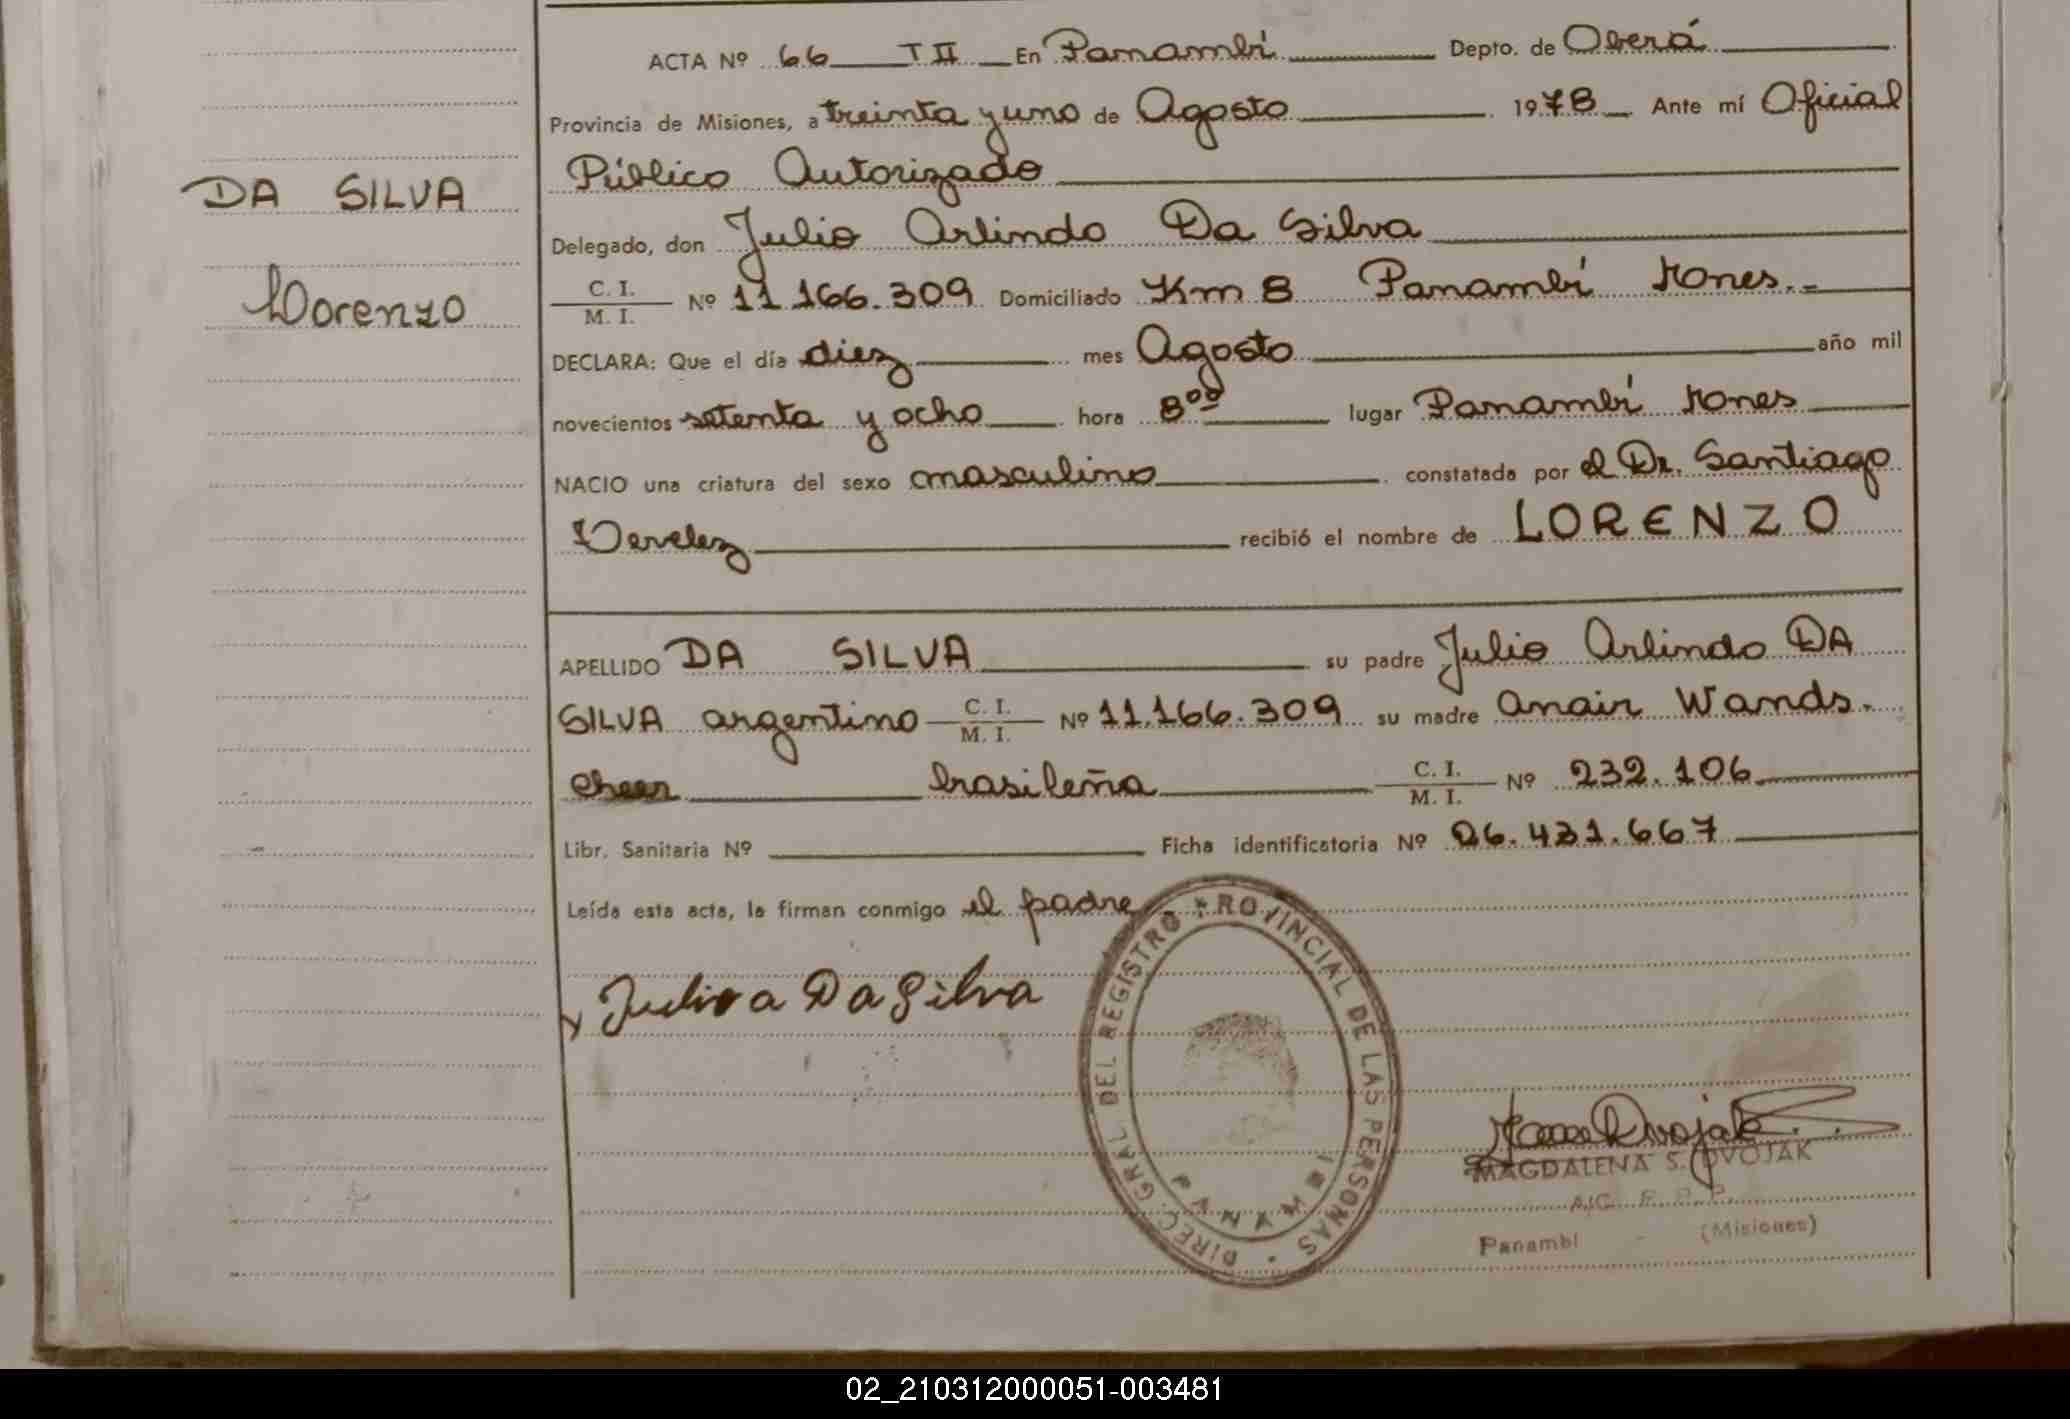 ACTA Nº 66 T II En Panambí Depto. de Oberá
Provincia de Misiones, a treinta y uno de Agosto 1978 Ante mí Oficial
Público Autorizado
DA SILVA
Delegado, don Julio Arlindo Da Silva
C. I.
M. I. Nº 11.166.309 Domiciliado Km 8 Panambí Mones.-
Lorenzo
DECLARA: Que el día diez mes Agosto año mil
novecientos setenta y ocho hora 8⁰⁰ lugar Panambí Mones
NACIO una criatura del sexo masculino constatada por el Dr. Santiago
recibió el nombre de LORENZO
APELLIDO DA SILVA su padre Julio Arlindo DA
SILVA argentino C. I. M. I. Nº 11.166.309 su madre Anair Wands-
cheer brasileña C. I. M. I. Nº 232.106
Libr. Sanitaria Nº Ficha identificatoria Nº 26.431.667
Leída esta acta, la firman conmigo el padre
Julio a Da Silva
DIREC. GRAL. DEL REGISTRO PROVINCIAL DE LAS PERSONAS
PANAMBI
MAGDALENA S. DVOJAK
Panambí (Misiones)
02_210312000051-003481